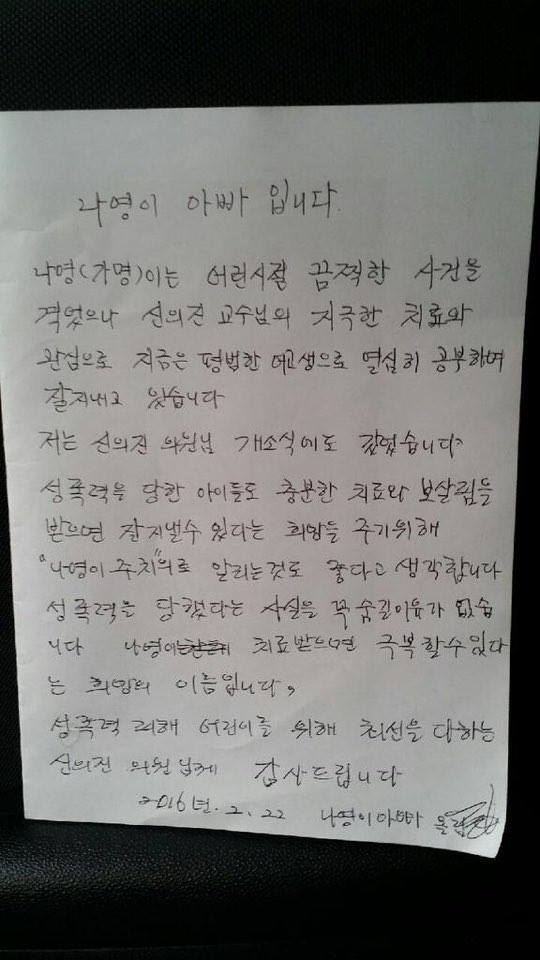 나영이 아빠 입니다.
나영(가명)이는 어린시절 끔찍한 사건을
겪었으나 신의진 교수님의 지극한 치료와
관심으로 지금은 평범한 여고생으로 열심히 공부하며
잘지내고 있습니다
저는 신의진 의원님 개소식에도 갔었습니다.
성폭력을 당한 아이들도 충분한 치료와 보살핌을
받으면 잘지낼수 있다는 희망을 주기위해
"나영이 주치"의로 알리는것도 좋다고 생각합니다
성폭력을 당했다는 사실을 꼭 숨길이유가 없습
니다 나영이는 치료받으면 극복할수 있다
는 희망의 이름입니다,
성폭력 피해 어린이를 위해 최선을 다하는
신의진 의원님께 감사드립니다
2016년. 2. 22 나영이아빠 올림